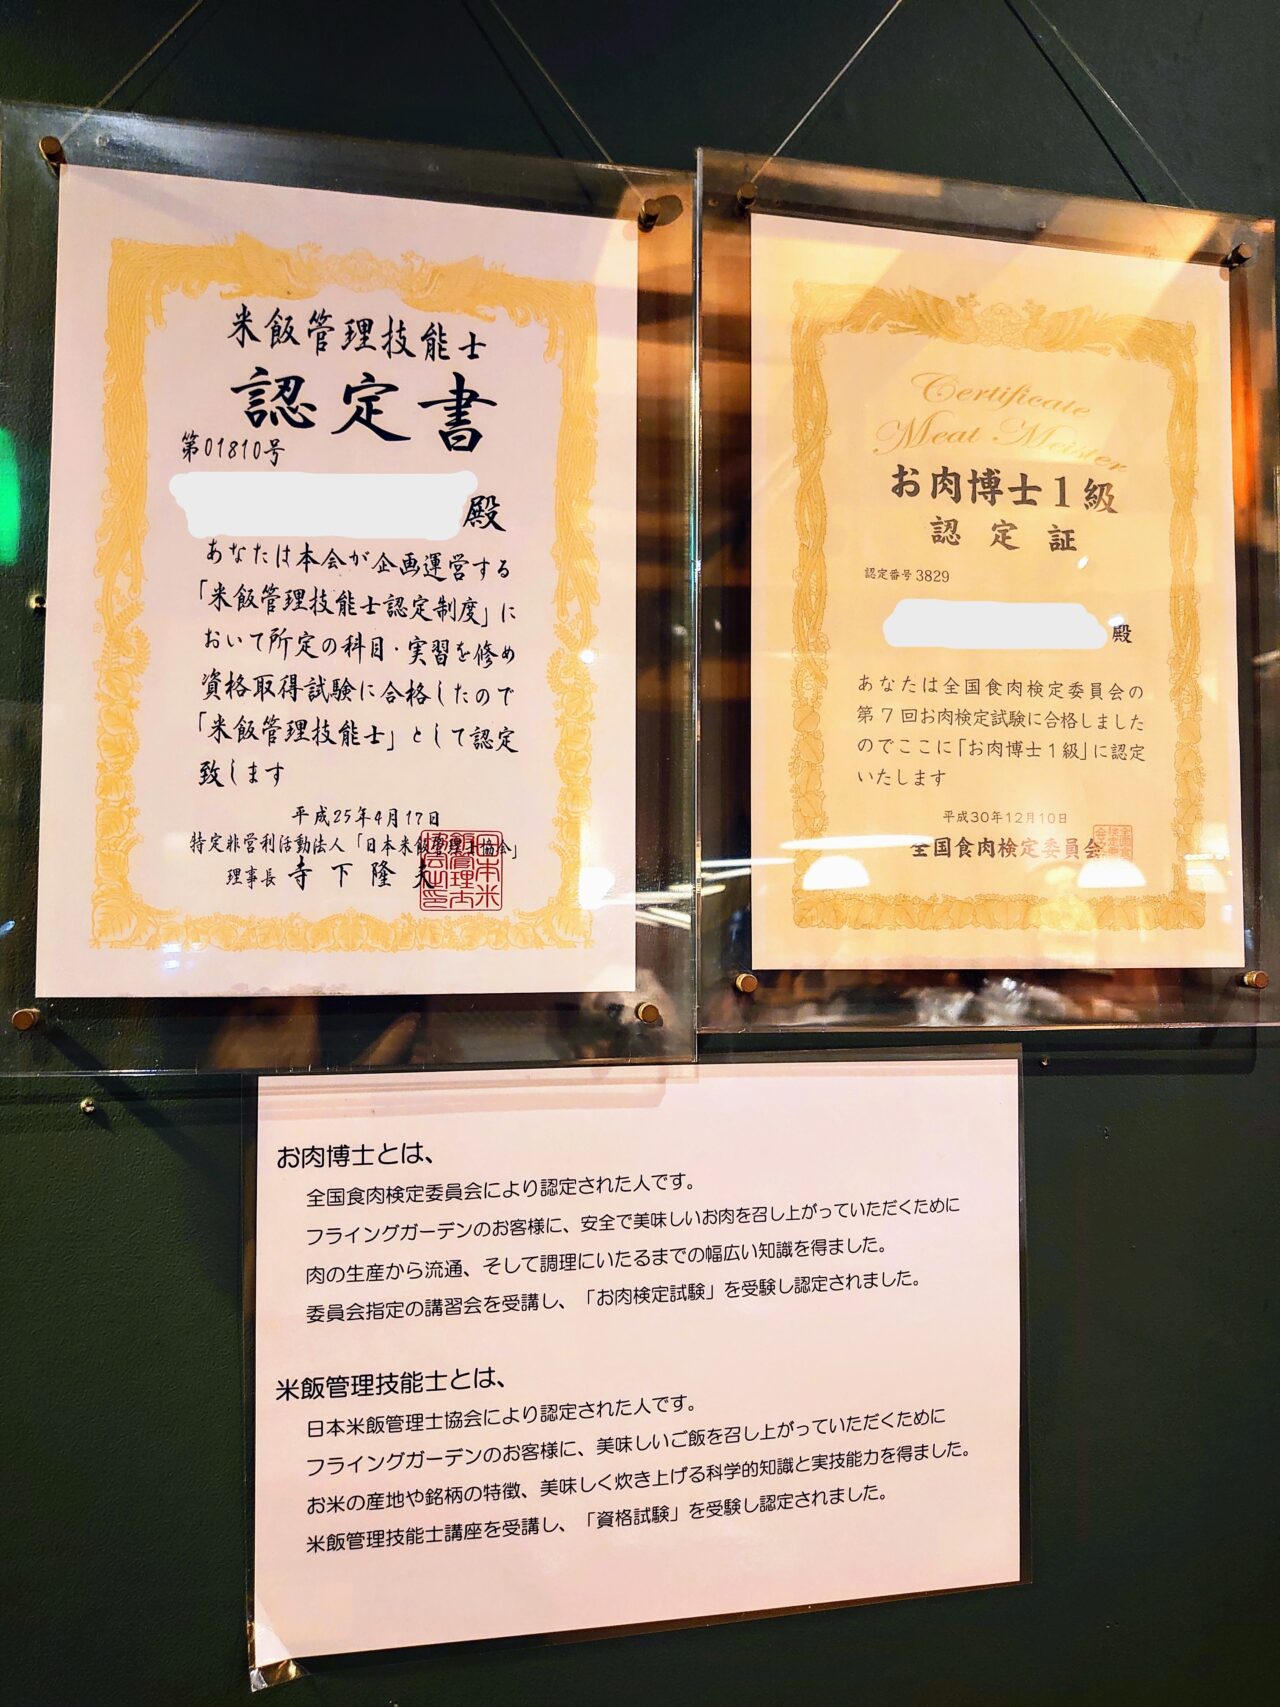 米飯管理技能士
認定書
第01810号
殿
あなたは本会が企画運営する
「米飯管理技能士認定制度」に
おいて所定の科目・実習を修め
資格取得試験に合格したので
「米飯管理技能士」として認定
致します
平成25年4月17日
特定非営利活動法人「日本米飯管理士協会」
理事長 寺下隆夫
Certificate
Meat Meister
お肉博士1級
認定証
認定番号3829
殿
あなたは全国食肉検定委員会の
第7回お肉検定試験に合格しました
のでここに「お肉博士1級」に認定
いたします
平成30年12月10日
全国食肉検定委員会
お肉博士とは、
全国食肉検定委員会により認定された人です。
フライングガーデンのお客様に、安全で美味しいお肉を召し上がっていただくために
肉の生産から流通、そして調理にいたるまでの幅広い知識を得ました。
委員会指定の講習会を受講し、「お肉検定試験」を受験し認定されました。
米飯管理技能士とは、
日本米飯管理士協会により認定された人です。
フライングガーデンのお客様に、美味しいご飯を召し上がっていただくために
お米の産地や銘柄の特徴、美味しく炊き上げる科学的知識と実技能力を得ました。
米飯管理技能士講座を受講し、「資格試験」を受験し認定されました。